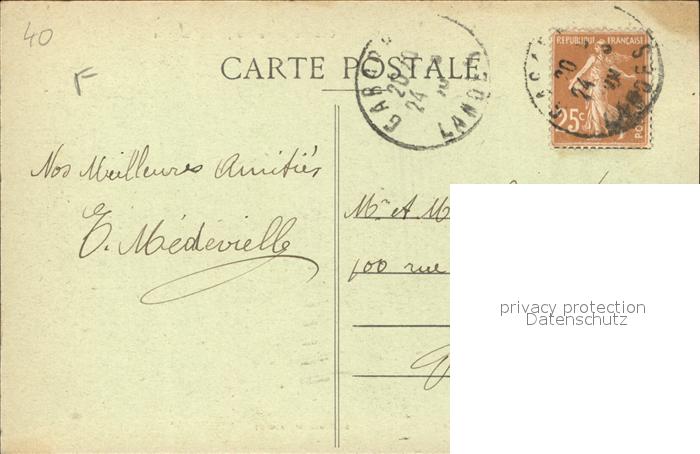 40
F
CARTE POSTALE
GABAR
20
24
LANDES
REPUBLIQUE FRANÇAISE
20
24
LANDES
25c
POS
Nos Meilleures Amitiés
E. Médévielle
Mr et M
100 rue
privacy protection
Datenschutz